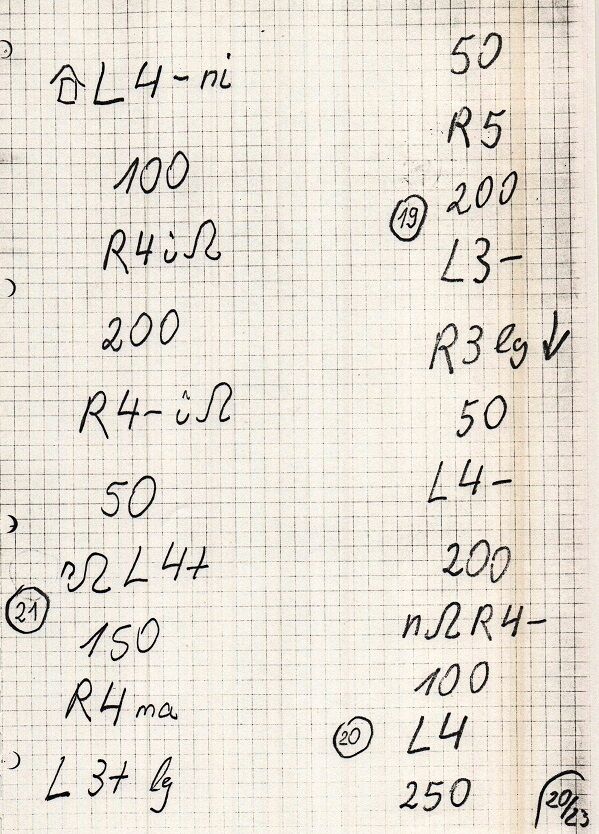 L4-ni
100
R4iΩ
200
R4-iΩ
50
nΩL4+
21
150
R4ma
L3+lg
50
R5
200
19
L3-
R3lg↓
50
L4-
200
nΩR4-
100
20
L4
250
20/23